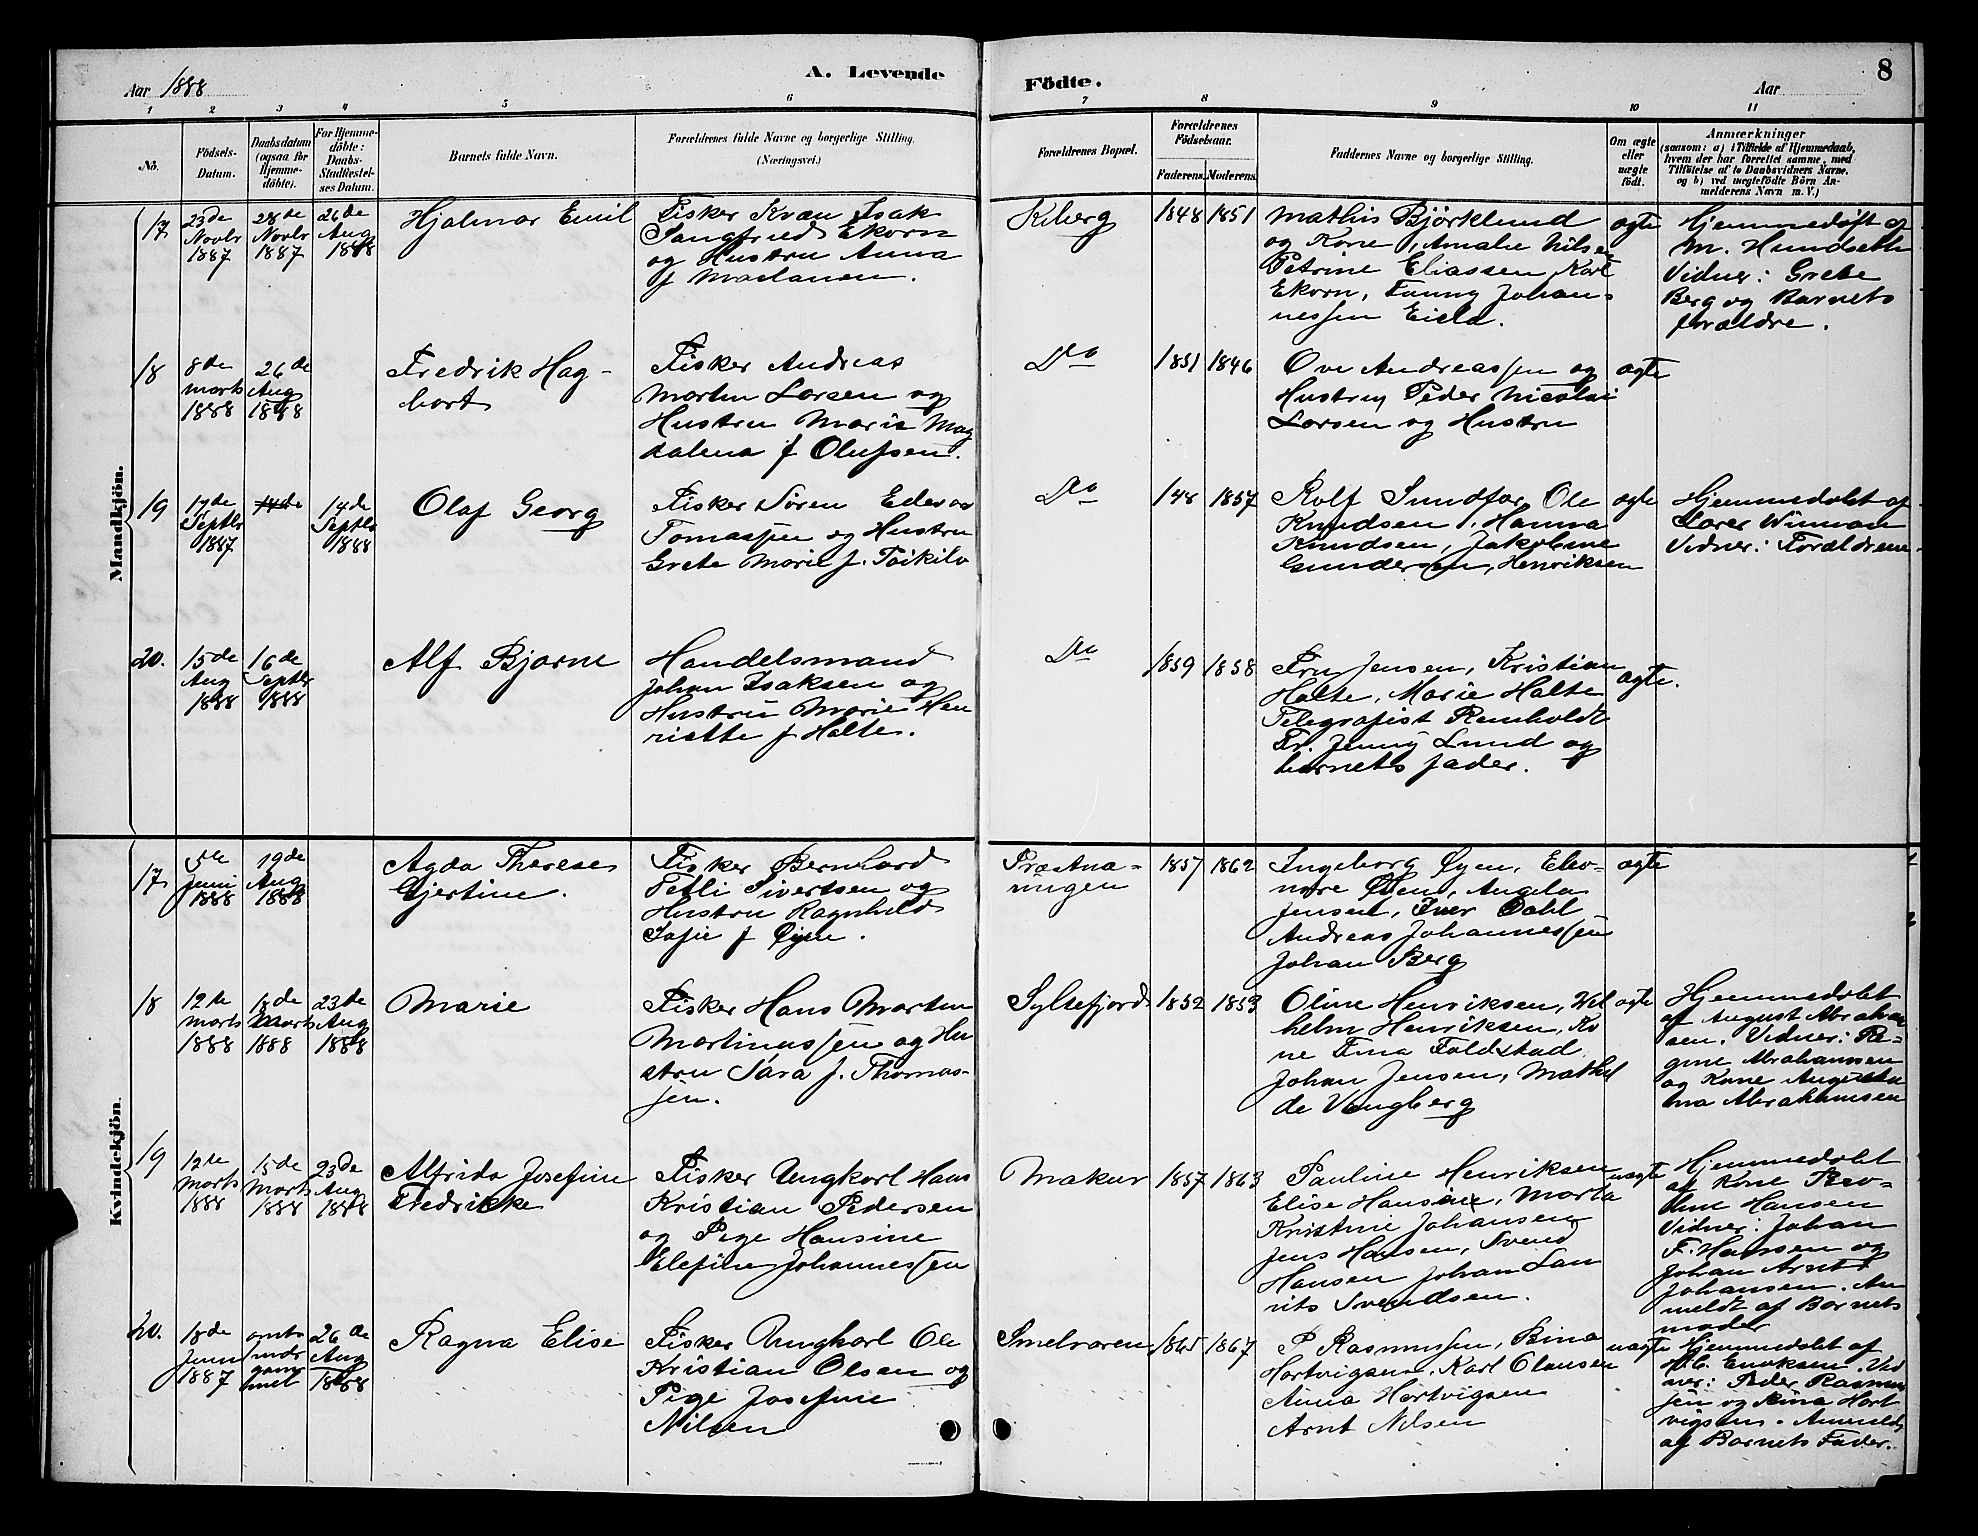 A. Levende Födte.
8
Aar 1888
Aar
1 2 3 4 5 6 7 8 9 10 11
No.
Födsels-
Datum.
Daabsdatum
(ogsaa för
Hjemme-
döbte).
For Hjemme-
döbte:
Daabs-
Stadfæstel-
ses Datum.
Barnets fulde Navn.
Forældrenes fulde Navne og borgerlige Stilling.
(Næringsvei.)
Forældrenes Bopæl.
Forældrenes
Födselsaar.
Faderens. Moderens.
Faddernes Navne og borgerlige Stilling.
Om ægte
eller
uægte
födt.
Anmærkninger
(saasom: a) i Tilfælde af Hjemmedaab,
hvem der har forrettet samme, med
Tilföielse af to Daabsvidners Navne,
og b) ved uægtefödte Börn An-
melderens Navn m. V.)
Mandkjön.
17
23de
Novbr
1887
28de
Novbr
1887
26de
Aug
1888
Hjalmar Emil
Fisker Kvæn Isak
Sangfried Ekorn
og Hustru Anna
f Maelanen.
Kiberg
1848 1851
Mathis Björklund
og Kone, Amalie Nilsen
Petrine Eliassen Karl
Ekorn, Fanny Johan-
nessen Eiela.
ægte
Hjemmedöft af
M. Hundseth
Vidner: Grete
Berg og Barnets
forældre.
18
8de
Marts
1888
26de
Aug
1888
Fredrik Hag-
bart
Fisker Andreas
Martin Larsen og
Hustru Marie Mag
dalena f Olufsen.
Do
1851 1846
Ove Andreassen og
Hustru, Peder Nicolai
Larsen og Hustru
ægte
19
17de
Septbr
1887
14de
14de
Septbr
1888
Olaf Georg
Fisker Sören Edevar
Tomassen og Hustru
Grete Marie f. Toikilo
Do
/48 1857
Rolf Sundfær, Ole
Knudsen, Hanna
Knudsen, Jakobine
Gundersen, Henriksen
ægte
Hjemmedobt af
Lærer Winman
Vidner: Forældrene.
20.
15de
Aug
1888
16de
Septbr
1888
Alf Bjarne
Handelsmand
Johan Isaksen og
Hustru Marie Hen
riette f Halte.
Do
1859 1858
Fru Jensen, Kristian
Halte, Marie Halte
Telegrafist Remholdt
Fr. Jenny Lund og
barnets fader.
ægte.
Kvindekjön.
17
5te
Juni
1888
19de
Aug
1888
Agda Therese
Gjertine.
Fisker Bernhard
Tetli Sivertsen og
Hustru Ragnhild
Sofie f Øyen.
Præstnæ-
ringen
1857 1862
Ingeborg Øyen, Eleo-
nore Øyen, Angela
Jensen, Iver Dahl
Andreas Johannessen
Johan Berg
ægte
18
12te
Marts
1888
18de
Marts
1888
23de
Aug
1888
Marie
Fisker Hans Martin
Martinussen og Hu
stru Sara f. Thomas-
sen.
Syltefjord
1852 1853
Oline Henriksen, Vil
helm Henriksen, Ko
ne Tina Foldstad
Johan Jensen, Mathil
de Vangberg
ægte
Hjemmedobt
af August Abraham
sen. Vidner: Re-
gine Abrahamsen
og Kone Augusta
tina Abrahamsen
19
12te
Marts
1888
15de
Marts
1888
23de
Aug
1888
Alfrida Josefine
Fredrikke
Fisker Ungkarl Hans
Kristian Pedersen
og Pige Hansine
Elefine Johannessen
Makur
1857 1863
Pauline Henriksen
Elise Hansine, Marta
Kristine Johansen
Jens Hansen, Svend
Hansen Johan Lau
rits Svendsen.
uægte
Hjemmedobt
af Kone
Hansen
Vidner: Johan
F. Hansen og
Johan Arnt
Johansen. An
meldt af Barnets
moder
20.
18de
Juni
1887
26de
Aug
1888
Ragna Elise
Fisker Ungkarl Ole
Kristian Olsen og
Pige Josefine
Nilsen
Smelroren
1865 1867
P Rasmussen, Bina
Hartvigsen, Karl Olausen
Anna Hartvigsen
Arnt Nilsen
uægte
Hjemmedobt af
H.C. Enoksen. Vid
ner: Peder Rasmus
sen og Bina Hart
vigsen. Anmeldt
af Barnets Fader.